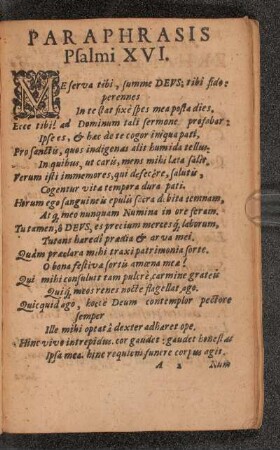 PARAPHRASIS
Psalmi XVI.
ME serva tibi, summe DEVS; tibi fido:
perennes
In te stat fixe spes mea posta dies,
Ecce tibi! ad Dominum tali sermone profabar:
Ipse es, & hæc do te cogor iniqua pati,
Pro sanctis, quos indigenas alit humida tellus:
In quibus, ut caris, mens mihi lata salit,
Verum isti immemores, qui defecêre, salutis,
Cogentur vita tempora dura pati.
Horum ego sanguineis epulis sacra d. bita temnam,
Atq; meo nunquam Numina in ore feram.
Tu tamen, ô DEVS, es precium mercesq; laborum,
Tutans haredi prædia & arva mei.
Quàm præclara mihi traxi patrimonia sorte.
O bona festiva sortis amœna mea!
Qui mihi consuluit tam pulcrè, carmine gratus
Quiq; meos renes nocte flagellat, ago.
Quicquid ago, hocce Deum contemplor pectore
semper
Ille mihi optatâ dexter adhæret ope.
Hinc vivo intrepidus. cor gaudet: gaudet honestas
Ipsa mea. hinc requiem funere corpus agit.
A 2 Nam